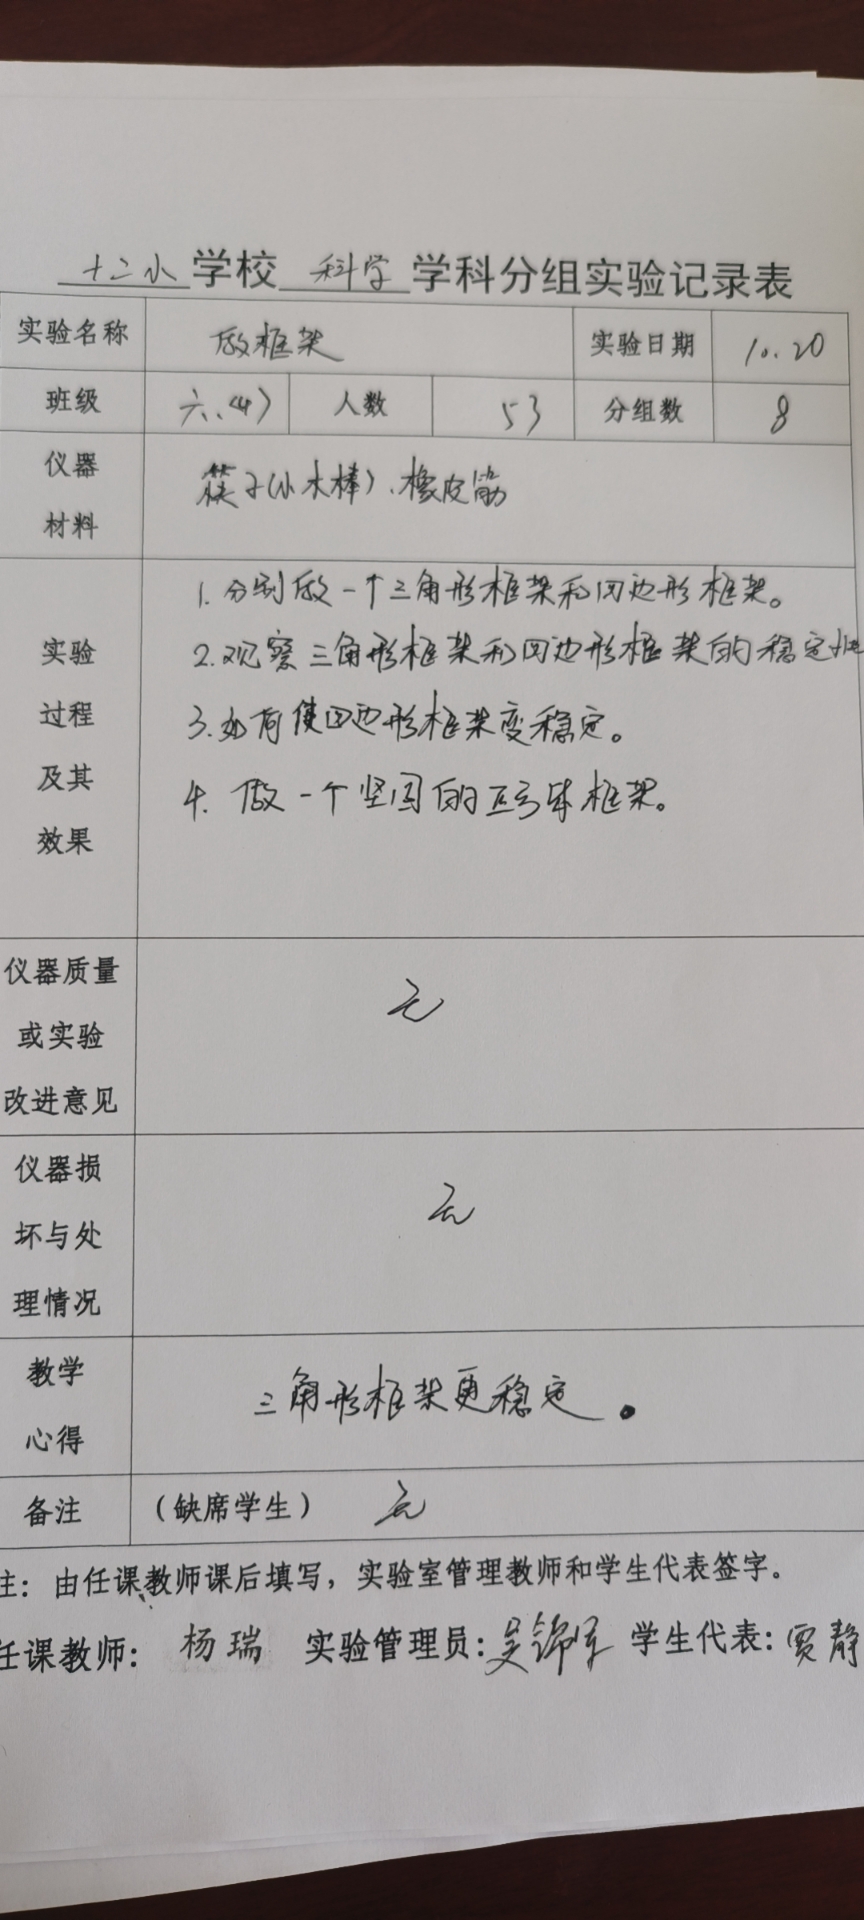 十二小学校 科学 学科分组实验记录表
实验名称 做框架 实验日期 10.20
班级 六.(4) 人数 53 分组数 8
仪器
材料
筷子(小木棒)、橡皮筋
实验
过程
及其
效果
1.分别做一个三角形框架和四边形框架。
2.观察三角形框架和四边形框架的稳定性
3.如何使四边形框架变稳定。
4.做一个坚固的正方体框架。
仪器质量
或实验
改进意见
无
仪器损
坏与处
理情况
无
教学
心得
三角形框架更稳定。
备注 (缺席学生) 无
注：由任课教师课后填写，实验室管理教师和学生代表签字。
任课教师：杨瑞 实验管理员：吴锦军 学生代表：贾静